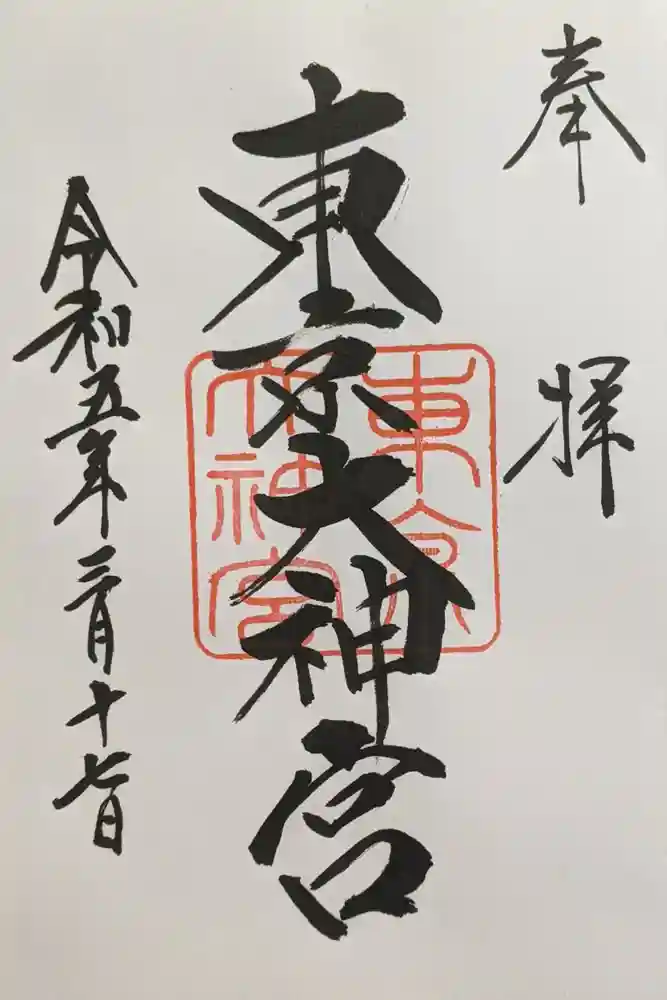 奉拝
東京大神宮
東京
大神宮
令和五年三月十七日